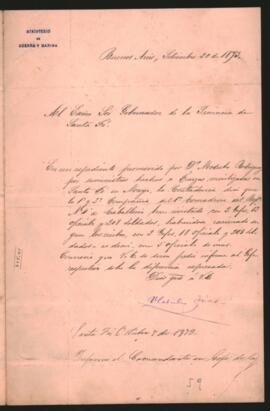 MINISTERIO
DE
GUERRA Y MARINA
Buenos Aires, Setiembre 20 de 187
Al Exmo Sor Gobernador de la Provincia de
Santa Fé.
En un expediente promovido por Dn Modesto
por suministros hechos a movilizados en
Santa Fé en Mayo, la Contaduria dice que
la 1a y 2a Compañia del Escuadron del Regto
No de Caballeria 2 Gefes, 13
oficiales y 208 soldados, habiendose racionado
con 2 Gefes, 18 oficiales y 208 sol-
dados, es decir, con 5 oficiales de mas.
Convenio que V. E. se sirva pedir informe al Gefe
respectivo sobre la diferencia espresada.
Dios gue á V. E.
Santa Fé, Octubre 8 de 1872
Informe el Comandante en Gefe de la
59